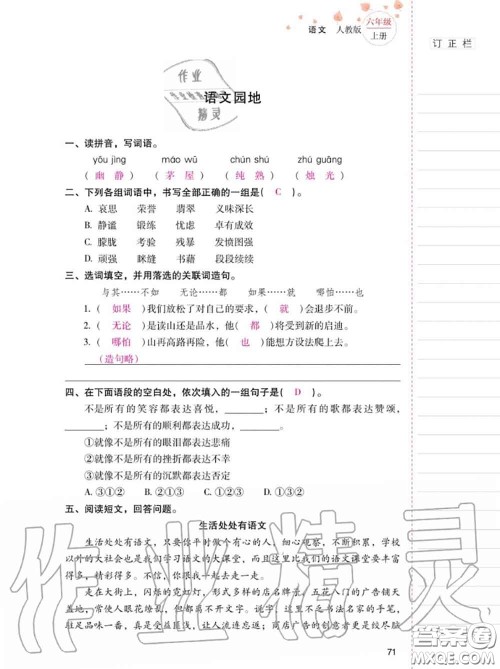 语文 人教版 六年级上册
订正栏
作业
精灵
语文园地
一、读拼音，写词语。
yōu jìng máo wū chún shú zhú guāng
（幽静）（茅屋）（纯熟）（烛光）
二、下列各组词语中，书写全部正确的一组是（ C ）。
A. 哀思 荣誉 翡翠 义味深长
B. 静谧 锻炼 忧虑 卓有成效
C. 朦胧 考验 残暴 发愤图强
D. 顽强 眯缝 书藉 段段续续
三、选词填空，并用落选的关联词造句。
与其……不如 无论……都 如果……就 哪怕……也
1.（如果）我们放松了对自己的要求，（就）会退步不前。
2.（无论）是读山还是品水，他（都）将受到新的启迪。
3.（哪怕）山再高路再险，他（也）能想方设法爬上去。
（造句略）
四、在下面语段的空白处，依次填入的一组句子是（ D ）。
不是所有的笑容都表达喜悦，________。不是所有的歌都表达赞颂，
________。不是所有的顺利都表达成功，________。
①就像不是所有的眼泪都表达悲痛
②就像不是所有的挫折都表达不幸
③就像不是所有的沉默都表达否定
A. ③①② B. ②①③ C. ③②① D. ①③②
五、阅读短文，回答问题。
生活处处有语文
生活处处有语文，只要你平时做个有心的人，细心的人，不断积累，学校
以外的大社会也是我们学习语文的大课堂，而且这里比我们的语文课堂要丰富
得多，精彩得多。不信，你跟我一起去走一走。
走在大街上，闪烁的霓虹灯，形形色色的店名牌层，五花八门的广告铺天
盖地，常使人眼花缭乱，但又目不暇接。说字，这里不乏书法名家的手笔，
驻足品味一番，真是受益匪浅，让人流连忘返；商店广告的创意者更是绞尽脑
71
作业精灵
答案圈
MXQE.COM